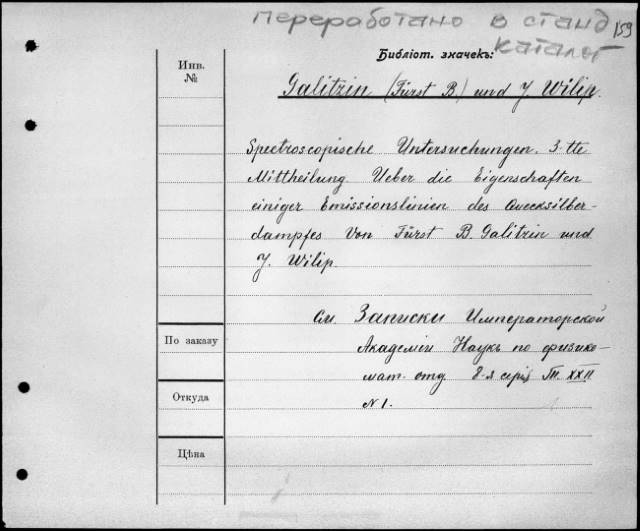 переработано в станд
каталог
159
Библiот. значекъ:
Инв.
№
Galitzin (Fürst B.) und J. Wilip.
Spectroscopische Untersuchungen. 3-tte
Mittheilung Ueber die Eigenschaften
einiger Emissionslinien des Quecksilber-
dampfes Von Fürst B. Galitzin und
J. Wilip.
См. Записки Императорской
Академiи Наукъ по физико-
мат. отд. 8-я серiя Т. XXII
N 1.
По заказу
Откуда
Цѣна